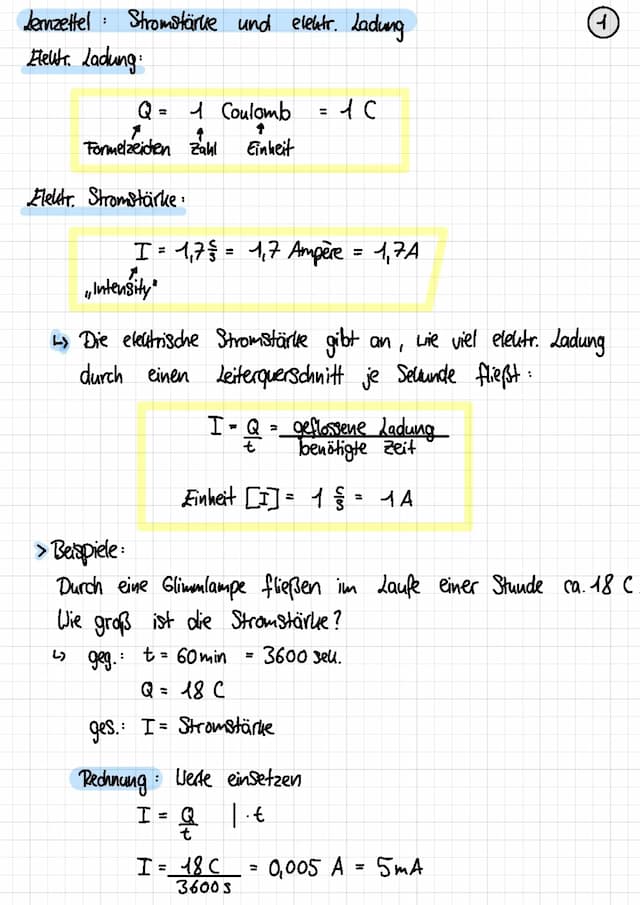 Lernzettel: Stromstärke und elektr. Ladung
1
Elektr. Ladung:
Q = 1 Coulomb = 1 C
Formelzeichen Zahl Einheit
Elektr. Stromstärke:
I = 1,7 C/s = 1,7 Ampère = 1,7A
„Intensity"
↳ Die elektrische Stromstärke gibt an, wie viel elektr. Ladung
durch einen Leiterquerschnitt je Sekunde fließt:
I = Q/t = geflossene Ladung/benötigte Zeit
Einheit [I] = 1 C/s = 1 A
> Beispiele:
Durch eine Glimmlampe fließen im Laufe einer Stunde ca. 18 C
Wie groß ist die Stromstärke?
↳ geg.: t = 60 min = 3600 sek.
Q = 18 C
ges.: I = Stromstärke
Rechnung: Werte einsetzen
I = Q/t | · t
I = 18 C/3600 s = 0,005 A = 5 mA